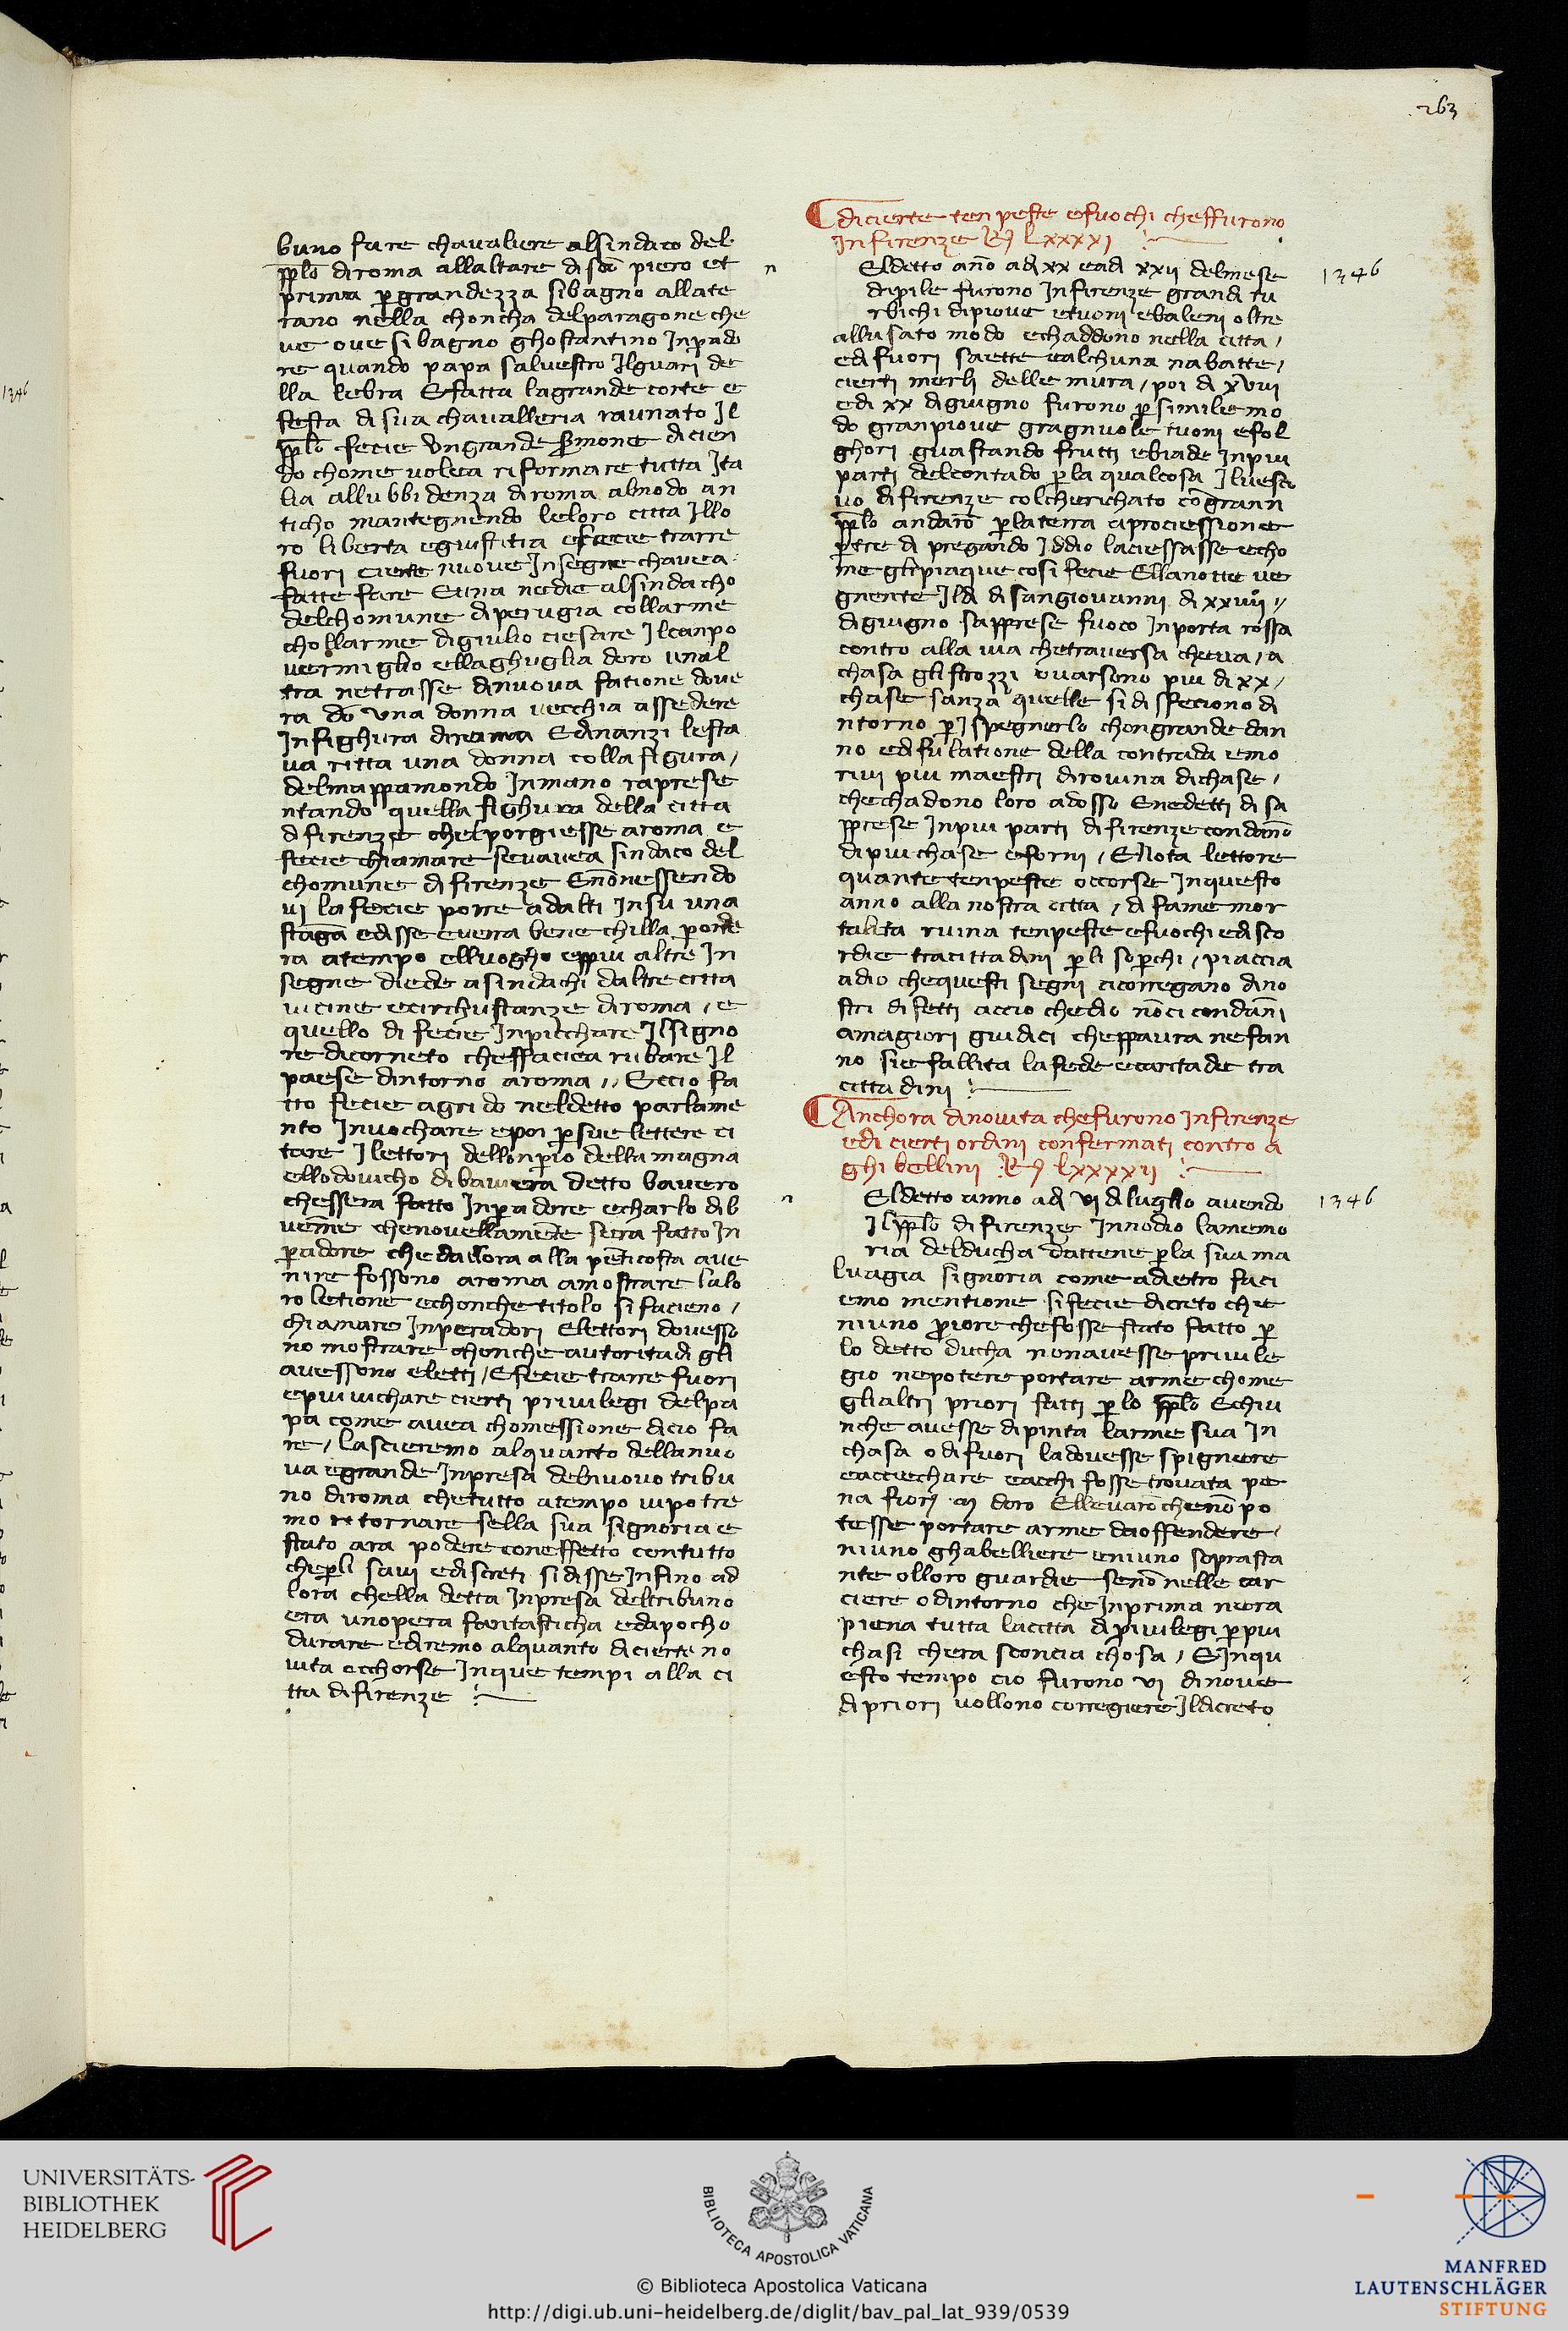 263
buno fare chavaliere alsindaco del
pplo diroma allaltare di sco piero et
prima p grandezza sibagno allate
rano nella choncha delparagone che
ve ove si bagno ghostantino Inpado
re quando papa salvestro Ilguari de
lla lebra Efatta lagrande corte e
festa di sua chavalleria raunato Il
pplo fecie Ungrande sermone dicien
do chome volea riformare tutta Ita
lia allubbidenza diroma almodo an
ticho mantegnendo leloro citta Illo
ro liberta egiustitia efecie trarre
fuori cierte nuove Insegne chavea
fatte fare Euna nedie alsindacho
delchomune diperugia collarme
chollarme digiulio ciesare Ilcanpo
vermiglio ellaghuglia doro unal
tra netrasse dinuova fatione dove
ra do una donna vecchia assedere
Infighura diroma Edinanzi lesta
va ritta una donna colla figura
delmappamondo Inmano raprese
ntando quella fighura della citta
difirenze chelporgiesse aroma e
fecie chiamare sevavea sindaco del
chomune di firenze Enonessendo
vi lafecie porre adalti Insu una
staga edisse everra bene chilla porte
ra atempo elluogho eppiu altre In
segne diede asindachi daltre citta
vicine ecirchustanze diroma, e
quello di fecie Inpicchare Ilsigno
re dicorneto cheffaciea rubare Il
paese dintorno aroma,, Eccio fa
tto fecie agrido neldetto parlame
nto Invochare epoi p sue lettere ci
tare Ilettori dellonpio dellamagna
ellodovicho dibaviera detto bavero
chessera fatto Inpadore echarlo dib
veme chenovellamente sera fatto In
padore che dallora alla penticosta ave
nire fossono aroma amostrare lalo
ro letione echonche titolo si facieno,
chiamare Inperadori Elettori dovesso
no mostrare chonche autorita di gli
avessono eletti, Efecie trarre fuori
epiuvichare cierti privilegi delpa
pa come avea chomessione dicio fa
re, lascieremo alquanto dellanuo
va egrande Inpresa delnuovo tribu
no diroma chetutto atempo vipotre
mo ritornare sella sua signoria e
stato ara podere coneffetto contutto
chepli savi ediscreti sidisse Infino ad
lora chella detta Inpresa deltribuno
era unopera fantasticha edapocho
durare ediremo alquanto dicierte no
vita occhorse Inque tempi alla ci
tta difirenze
dicierte tenpeste efuochi cheffurono
Infirenze R lxxxxi
1346
Eldetto ano adi xx eadi xxii delmese
dipile furono Infirenze grandi tu
rbichi dipiove etuoni ebaleni oltre
allusato modo echaddono nella citta,
edi fuori saette ealchuna nabatte,
cierti merli delle mura, poi di xviii
edi xx digiugno furono p similemo
do granpiove gragnuole tuoni efol
ghori guastando frutti ebiade Inpiu
parti delcontado p la qualcosa Ilvesco
vo difirenze colchericato congrann
pplo andaro p laterra aprociessione
p tre di pregando Iddio laciessasse echo
me glipiaque cosi fecie Ellanotte ve
gnente Ildi di sangiovanni di xxiiii,,
digiugno sapprese fuoco Inporta rossa
contro alla via chetraversa cheva, a
chasa glistrozzi evarsono piu di xx,
chase sanza quelle si disfeciono di
ntorno p Ispegnerlo chongrande dan
no edisulatione della contrada emo
rivi piu maestri dirovina dichase,
chechadono loro adosso Enedetti di sa
pprese Inpiu parti difirenze condano
dipiuchase eforni, Enota lettore
quante tenpeste occorse Inquesto
anno alla nostra citta, di fame mor
talita ruina tenpeste efuochi edisco
rdie tracittadini p li soperchi, piaccia
adio chequesti segni cicorregano dino
stri difetti accio chedio nonci condanni
amagiori giudici cheppaura nefan
no sie fallita la fede ecaritade tra
cittadini
Anchora dinovita chefurono Infirenze
edi cierti ordini confermati contro a
ghibellini R lxxxxii
1346
Eldetto anno adi vi diluglio avendo
Ilpplo difirenze Innodio lamemo
ria delducha dattene p la sua ma
lvagia signoria come adietro faci
emo mentione sifecie dicreto che
niuno priore chefosse stato fatto p
lo detto ducha nonavesse privile
gio nepotere portare arme chome
glialtri priori fatti p lo pplo Echiu
nche avesse dipinta larme sua In
chasa odifuori ladovesse spignere
eacciechare eacchi fosse trovata pe
na fiorj m doro Ellevaro cheno po
tesse portare arme daoffendere
niuno ghabelliere eniuno soprasta
nte olloro guardie senonelle car
ciere odintorno cheInprima nera
piena tutta lacitta diprivilegi p piu
chasi chera sconcia chosa, EInqu
esto tempo cio furono vi dinove
dipriori vollono corregiere Ildicreto
UNIVERSITÄTS-
BIBLIOTHEK
HEIDELBERG
BIBLIOTECA APOSTOLICA VATICANA
© Biblioteca Apostolica Vaticana
http://digi.ub.uni-heidelberg.de/diglit/bav_pal_lat_939/0539
MANFRED
LAUTENSCHLÄGER
STIFTUNG